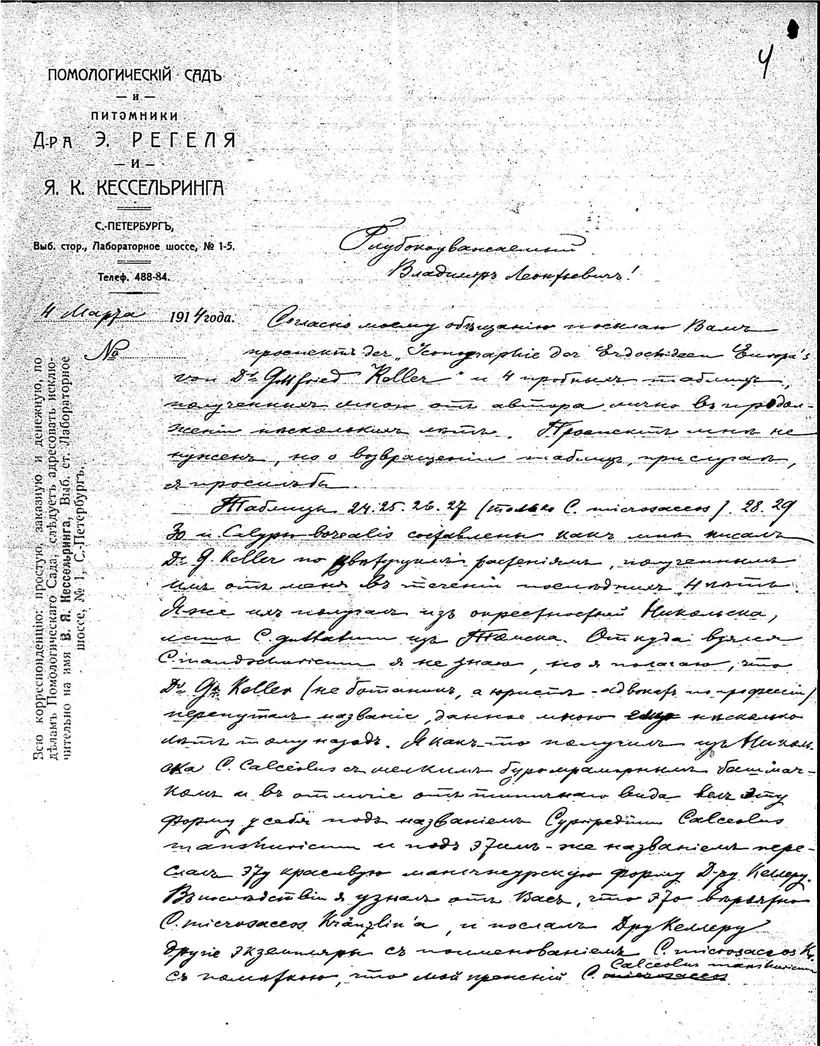 4
ПОМОЛОГИЧЕСКІЙ САДЪ
— и —
ПИТОМНИКИ
Д-РА Э. РЕГЕЛЯ
— И —
Я. К. КЕССЕЛЬРИНГА
С.-ПЕТЕРБУРГЪ,
Выб. стор., Лабораторное шоссе, № 1-5.
Телеф. 488-84.
4 Марта 1914 года.
№
Всю корреспонденцію: простую, заказную и денежную, по
дѣламъ Помологическаго Сада, слѣдуетъ адресовать исклю-
чительно на имя В. Я. Кессельринга, Выб. ст. Лабораторное
шоссе, № 1, С.-Петербургъ.
Глубокоуважаемый
Владимиръ Леонтьевичъ!
Согласно моему обѣщанію посылаю Вамъ
проспектъ der „Iconographie der Orchideen Europa's
von Dr. Gottfried Keller" и 4 пробныхъ таблицъ,
полученныхъ мною отъ автора лично въ продол-
женіи нѣсколькихъ лѣтъ. Проспектъ мнѣ не
нуженъ, но о возвращеніи таблицъ,
я просилъ бы.
Таблицы 24. 25. 26. 27 (только C. microsaccos). 28. 29
30 и Calypso borealis составлены какъ мнѣ писалъ
Dr. G. Keller по цвѣтущимъ растеніямъ, полученнымъ
имъ отъ меня въ теченіи послѣднихъ 4 лѣтъ.
Я же ихъ получалъ изъ окрестностей Никольска,
лишь C. guttatum изъ Томска. Откуда взялся
C. mandschuricum я не знаю, но я полагаю, что
Dr. G. Keller (не ботаникъ, а юристъ-адвокатъ по профессіи)
перепуталъ названіе, данное мною ему нѣсколько
лѣтъ тому назадъ. Я какъ-то получилъ изъ Николь-
ска C. Calceolus съ мелкимъ буромраморнымъ башмач-
комъ и въ отличіе отъ типичнаго вида велъ эту
форму у себя подъ названіемъ Cypripedium Calceolus
manshuricum и подъ этимъ-же названіемъ пере-
слалъ эту красивую манчжурскую форму Д-ру Келлеру.
Впослѣдствіи я узналъ отъ Васъ, что это вѣроятно
C. microsaccos Kränzlin'a, и послалъ Дру Келлеру
другіе экземпляры съ поименованіемъ C. microsaccos Kr.
съ помѣткою, что мой прежній C. Calceolus manshuricum